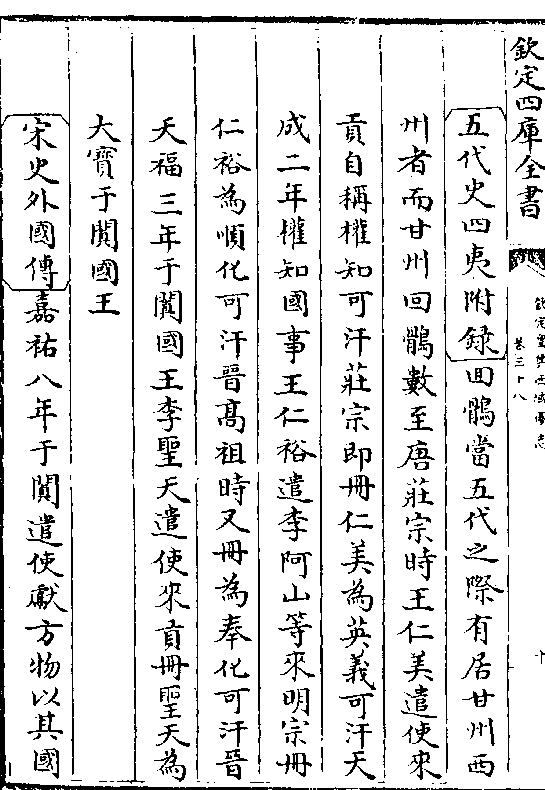 欽定四庫全書
欽定皇輿西域圖志
卷三十八
十
五代史四夷附録回鶻當五代之際有居甘州西
州者而甘州回鶻數至唐莊宗時王仁美遣使來
貢自稱權知可汗莊宗即冊仁美為英義可汗天
成二年權知國事王仁裕遣李阿山等來明宗冊
仁裕為順化可汗晉髙祖時又冊為奉化可汗晉
天福三年于闐國王李聖天遣使來貢冊聖天為
大寶于闐國王
宋史外國傳嘉祐八年于闐遣使獻方物以其國